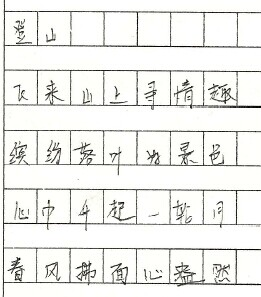 登山
飞来山上寻情趣
缤纷落叶景色
心中升起一轮月
春风拂面心盎然